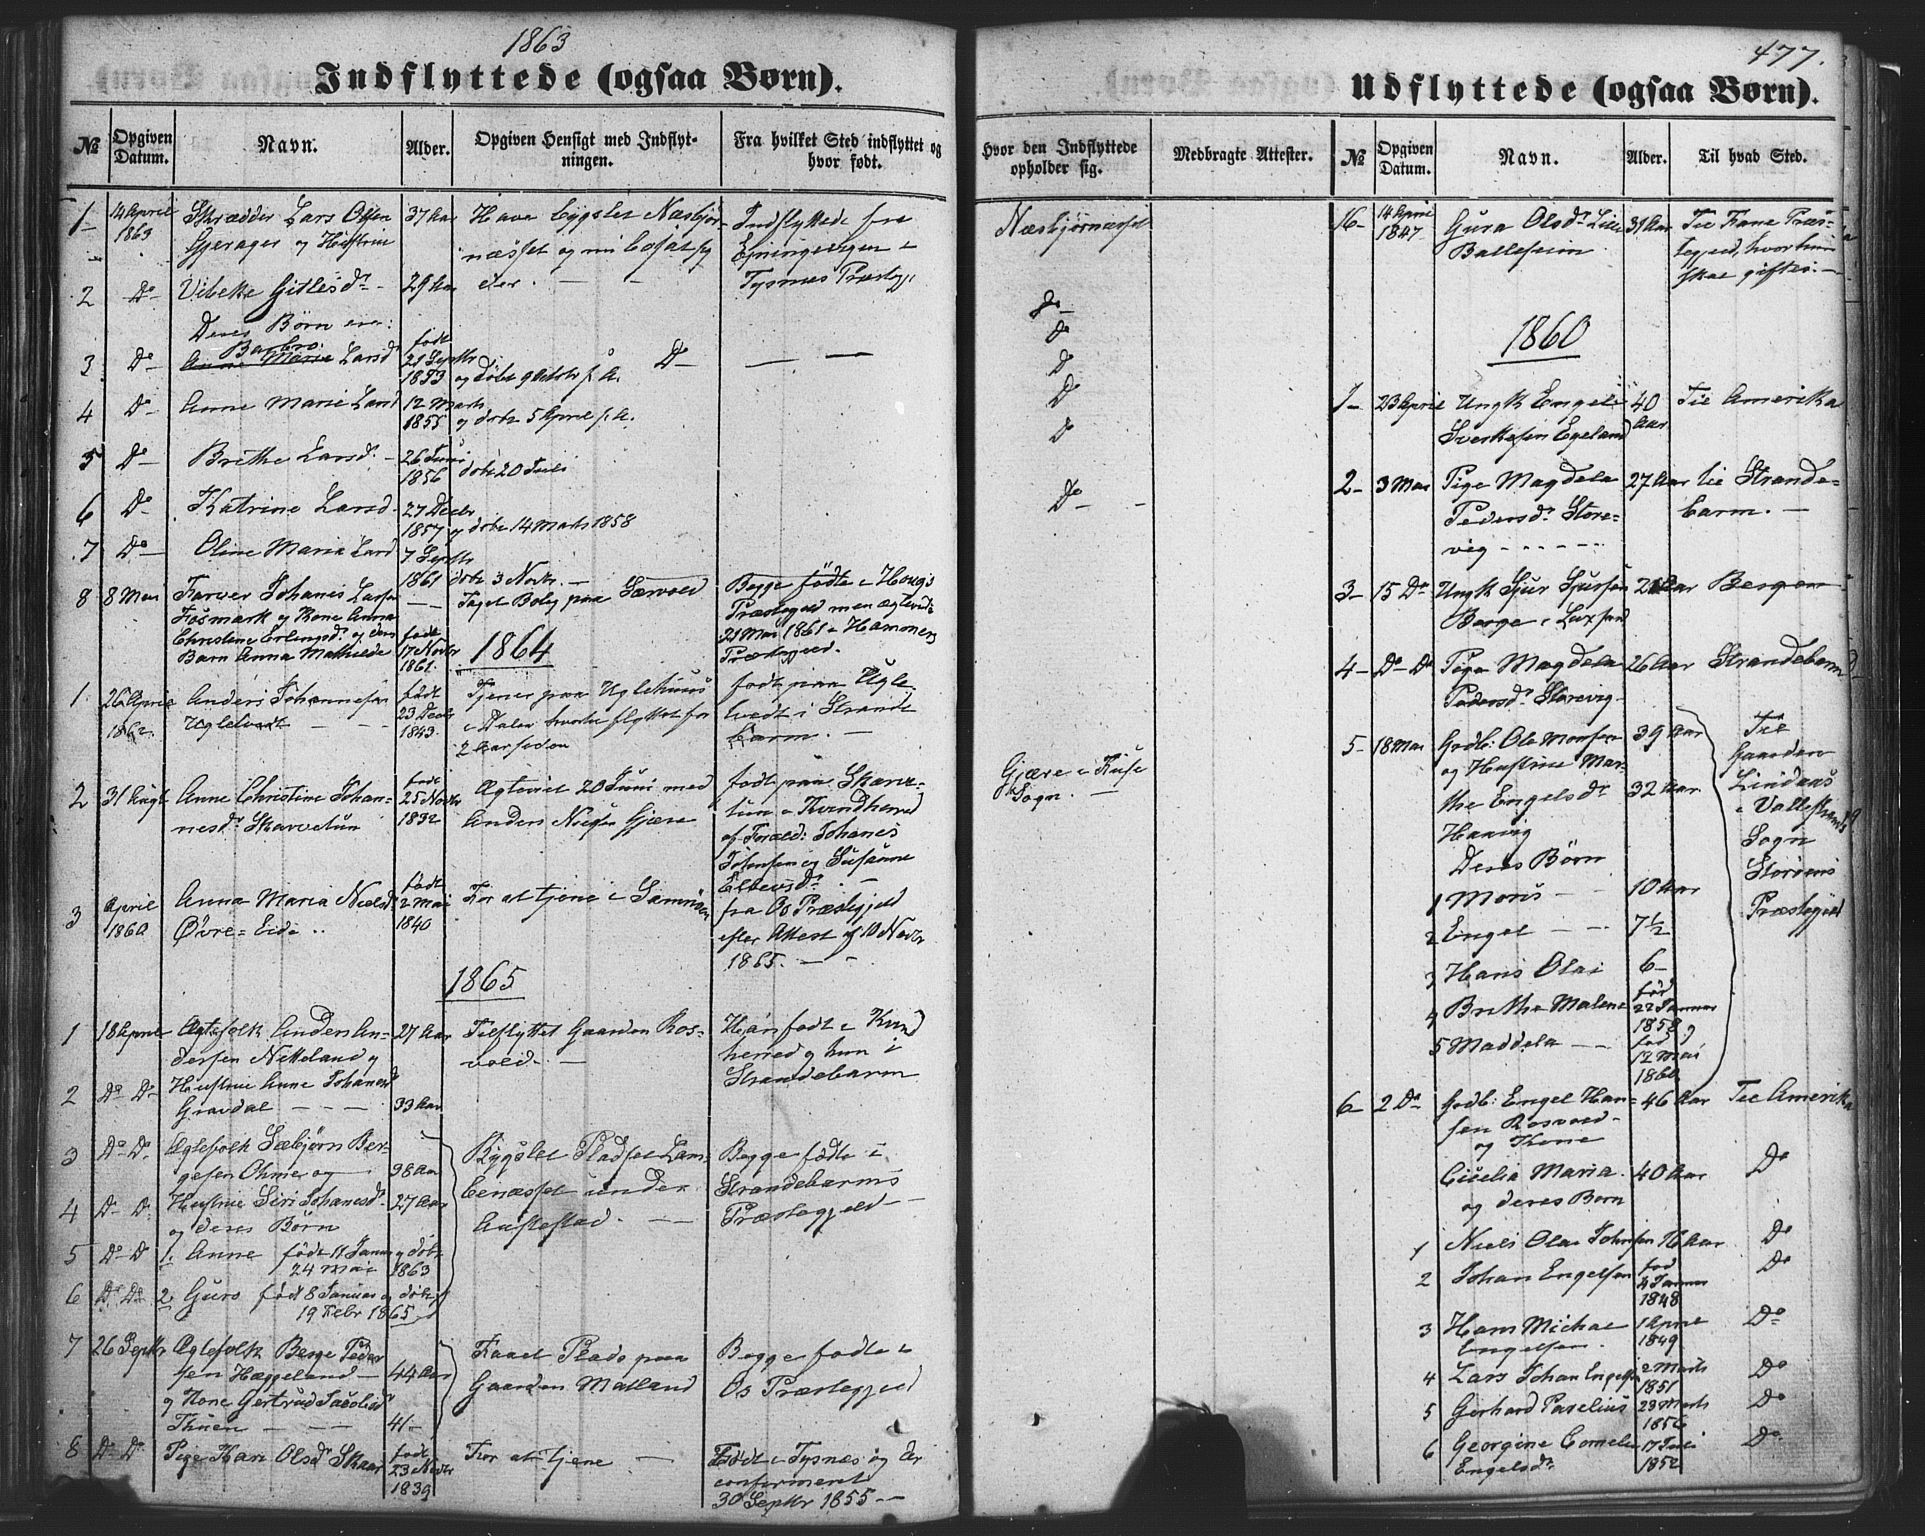 1863
Indflyttede (ogsaa Børn).
№
Opgiven Datum.
Navn.
Alder.
Opgiven Hensigt med Indflytningen.
Fra hvilket Sted indflyttet og hvor født.
1
14 April 1863
Skrædder Lars Olsen
Gjerager og Hustrue
37 Aar
Have bygslet Næsbjør-
næsset og
der. —
Indflyttede fra
Tysnes Præstegj.
2
Do
Vibeke Gitlesdr
29 Aar
Deres Børn ere:
3
Do
Barbro
Anne Marie Larsd
født
21 Septbr
1853
og døbt 9 Octbr s. A.
Do
4
Do
Anne Marie Larsd
12 Marts
1855
og døbt 5 April s. A.
5
Do
Brithe Larsd.
26 Juni
1856
døbt 20 Juli
6
Do
Katrine Larsd.
27 Decbr
1857
og døbt 14 Marts 1858
7
Do
Oline Maria Larsd
7 Septbr
1861
døbt 3 Novbr. —
8
8 Mai
Farver Johanis Larsen
Fosmark og Kone Anna
Christine Erlingsdr. og deres
Barn Anna Mathilde
født
17 Novbr
1861.
Taget Bolig paa Særvold
Begge fødte i Hougs
Præstegjeld men ægteviede
21 Mai 1861 i Hammers
Præstegjeld.
1864
1
26 April
1862.
Anders Johannesen
Ugletvedt
født
23 Decbr
1843.
Tjener paa Uglehuus
i Dalen hvortil flyttet for
2 Aar siden
født paa Ugle-
tvedt i Strande-
barm. —
2
31 Augt
Anne Christine Johan-
nesdr. Skarvetun
født
25 Novbr
1832
Ægteviet 20 Juni med
Anders Nielsen Gjære
født paa Skarve-
tun i Kvindherred
af Foræld: Johanis
Johnsen og Susanne
3
April
1860
Anna Maria Nielsd
Øvre-Eide
født
2 Mai
1840
For at tjene i
fra Os Præstegjeld
efter Attest af 10 Novbr
1865. —
1865
1
18 April
Ægtefolk Anders An-
dersen Netteland og
27 Aar
Tilflyttet Gaarden Ros-
vold. —
Han født i Kvind
herred og hun i
Strandebarm
2
Do Do
Hustrue Anne Johanesd
Gravdal
33 Aar
3
Do Do
Ægtefolk Sæbjørn Ber-
gesen Ohme og
38 Aar
Bygslet Pladset Lam-
benæsset under
Austestad. —
Begge fødte i
Strandebarms
Præstegjeld —
4
Do Do
Hustrue Siri Johanesdr.
og deres Børn
27 Aar
5
Do Do
1. Anne født 17 Januar og døbt
24 Mai 1863
6
Do Do
2. Guro født 8 Januar og døbt
19 Febr 1865
7
26 Septbr
Ægtefolk Berge Peder
sen Hæggeland —
og Kone Gertrud Jacobsd
Thuen —
44 Aar
41 —
Faaet Plads paa
Gaarden Matland
Begge fødte i
Os Præstegjeld
8
Do Do
Pige Kari Olsdr Skaar
født
23 Novbr
1839
For at tjene —
Født i Tysnes og er
confirmeret
30 Septbr 1855 —
477.
Udflyttede (ogsaa Børn).
Hvor den Indflyttede opholder sig.
Medbragte Attester.
№
Opgiven Datum.
Navn.
Alder.
Til hvad Sted.
Næsbjørnæset
Do
Do
Do
Do
Do
Do
Gjære i Fuse
Sogn. —
16
14 April
1847
Gura Olsdr. Lille
Balleseim
31 Aar
Til Fane Præs-
tegjeld, hvor hun
skal giftes. —
1860
1
23 April
Ungk Engel
Sverkesen Egeland
40
Aar
Til Amerika
2
3 Mai
Pige Magdela
Pedersdr. Store-
vig
27 Aar
til Strande-
barm. —
3
15 Do
Ungk Sjur Sjursen
Berge i
Aar
Bergen
4
Do Do
Pige Magdela
Pedersdr Storevig
26 Aar
Strandebarm
5
18 Mai
Godb: Ole Monsen
og Hustrue Mar-
the Engelsdr
Haavig
39 Aar
32 Aar
Til
Gaarden
Lindaas
i Vallestrands
Sogn
Storøens
Præstegjeld
Deres Børn
1 Mons
10 Aar
2 Engel
7½
3 Hans Olai
6
4 Brithe Malene
født
22 Januar
1858
5 Maddela
født
12 Mai
1860
6
2 Do
Godb: Engel Han-
sen Rosvold
og Kone
46 Aar
Til Amerika
Cicelia Maria
og deres Born
40 Aar
Do
1
Niels Olai Johnsen
16 Aar
Do
2
Johan Engelsen
fød
4 Januar
1848
Do
3
Hans Michal
Engelsen.
1 April
1849
Do
4
Lars Johan Engelsen
2 Marts
1851
Do
5
Gerhard Paselius
23 Marts
1856
Do
6
Georgine Cornelia
Engelsdr.
17 Juli
1852
Do